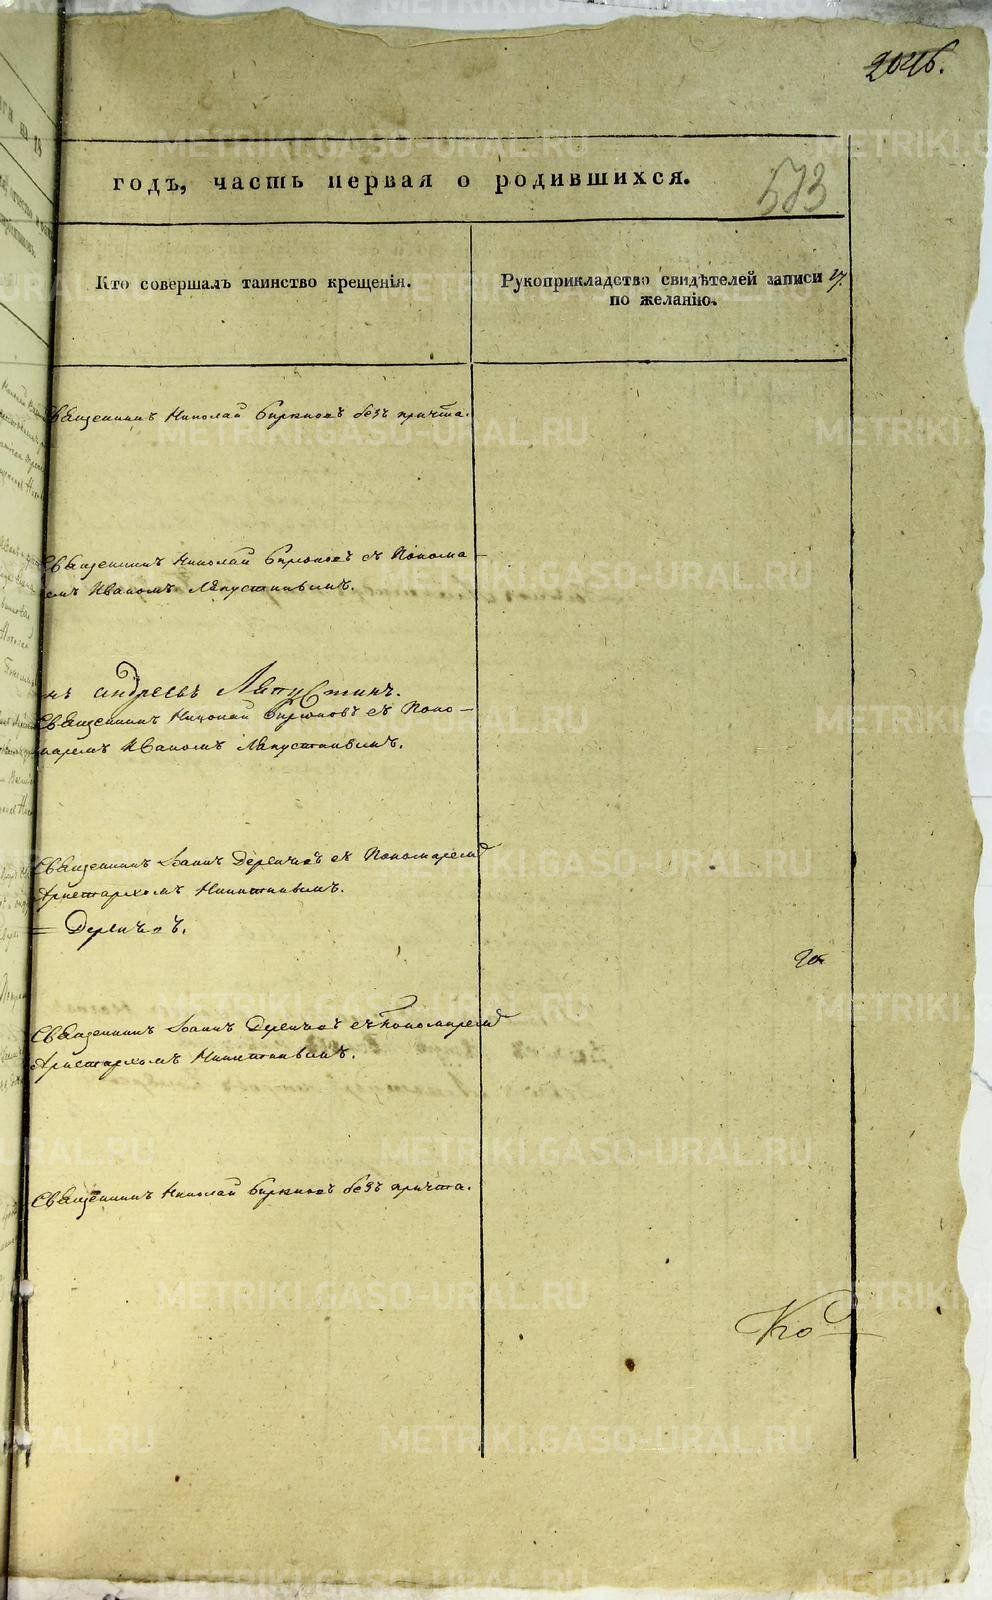 204б.
годъ, часть первая о родившихся.
573
Кто совершалъ таинство крещенія.
Рукоприкладство свидѣтелей записи
по желанію.
Священникъ Николай Бирюковъ безъ причта.
Священникъ Николай Бирюковъ съ Понома-
емъ Иваномъ Ляпустинымъ.
андреевъ Ляпустинъ.
Священникъ Николай Бирюковъ съ Поно-
маремъ Иваномъ Ляпустинымъ.
Священникъ Іоаннъ Деречковъ съ Пономаремъ
Аристархомъ Никитинымъ.
= Деречковъ.
Священникъ Іоаннъ Деречковъ съ Пономаремъ
Аристархомъ Никитинымъ.
Священникъ Николай Бирюковъ безъ причта.
Ко
METRIKI.GASO-URAL.RU